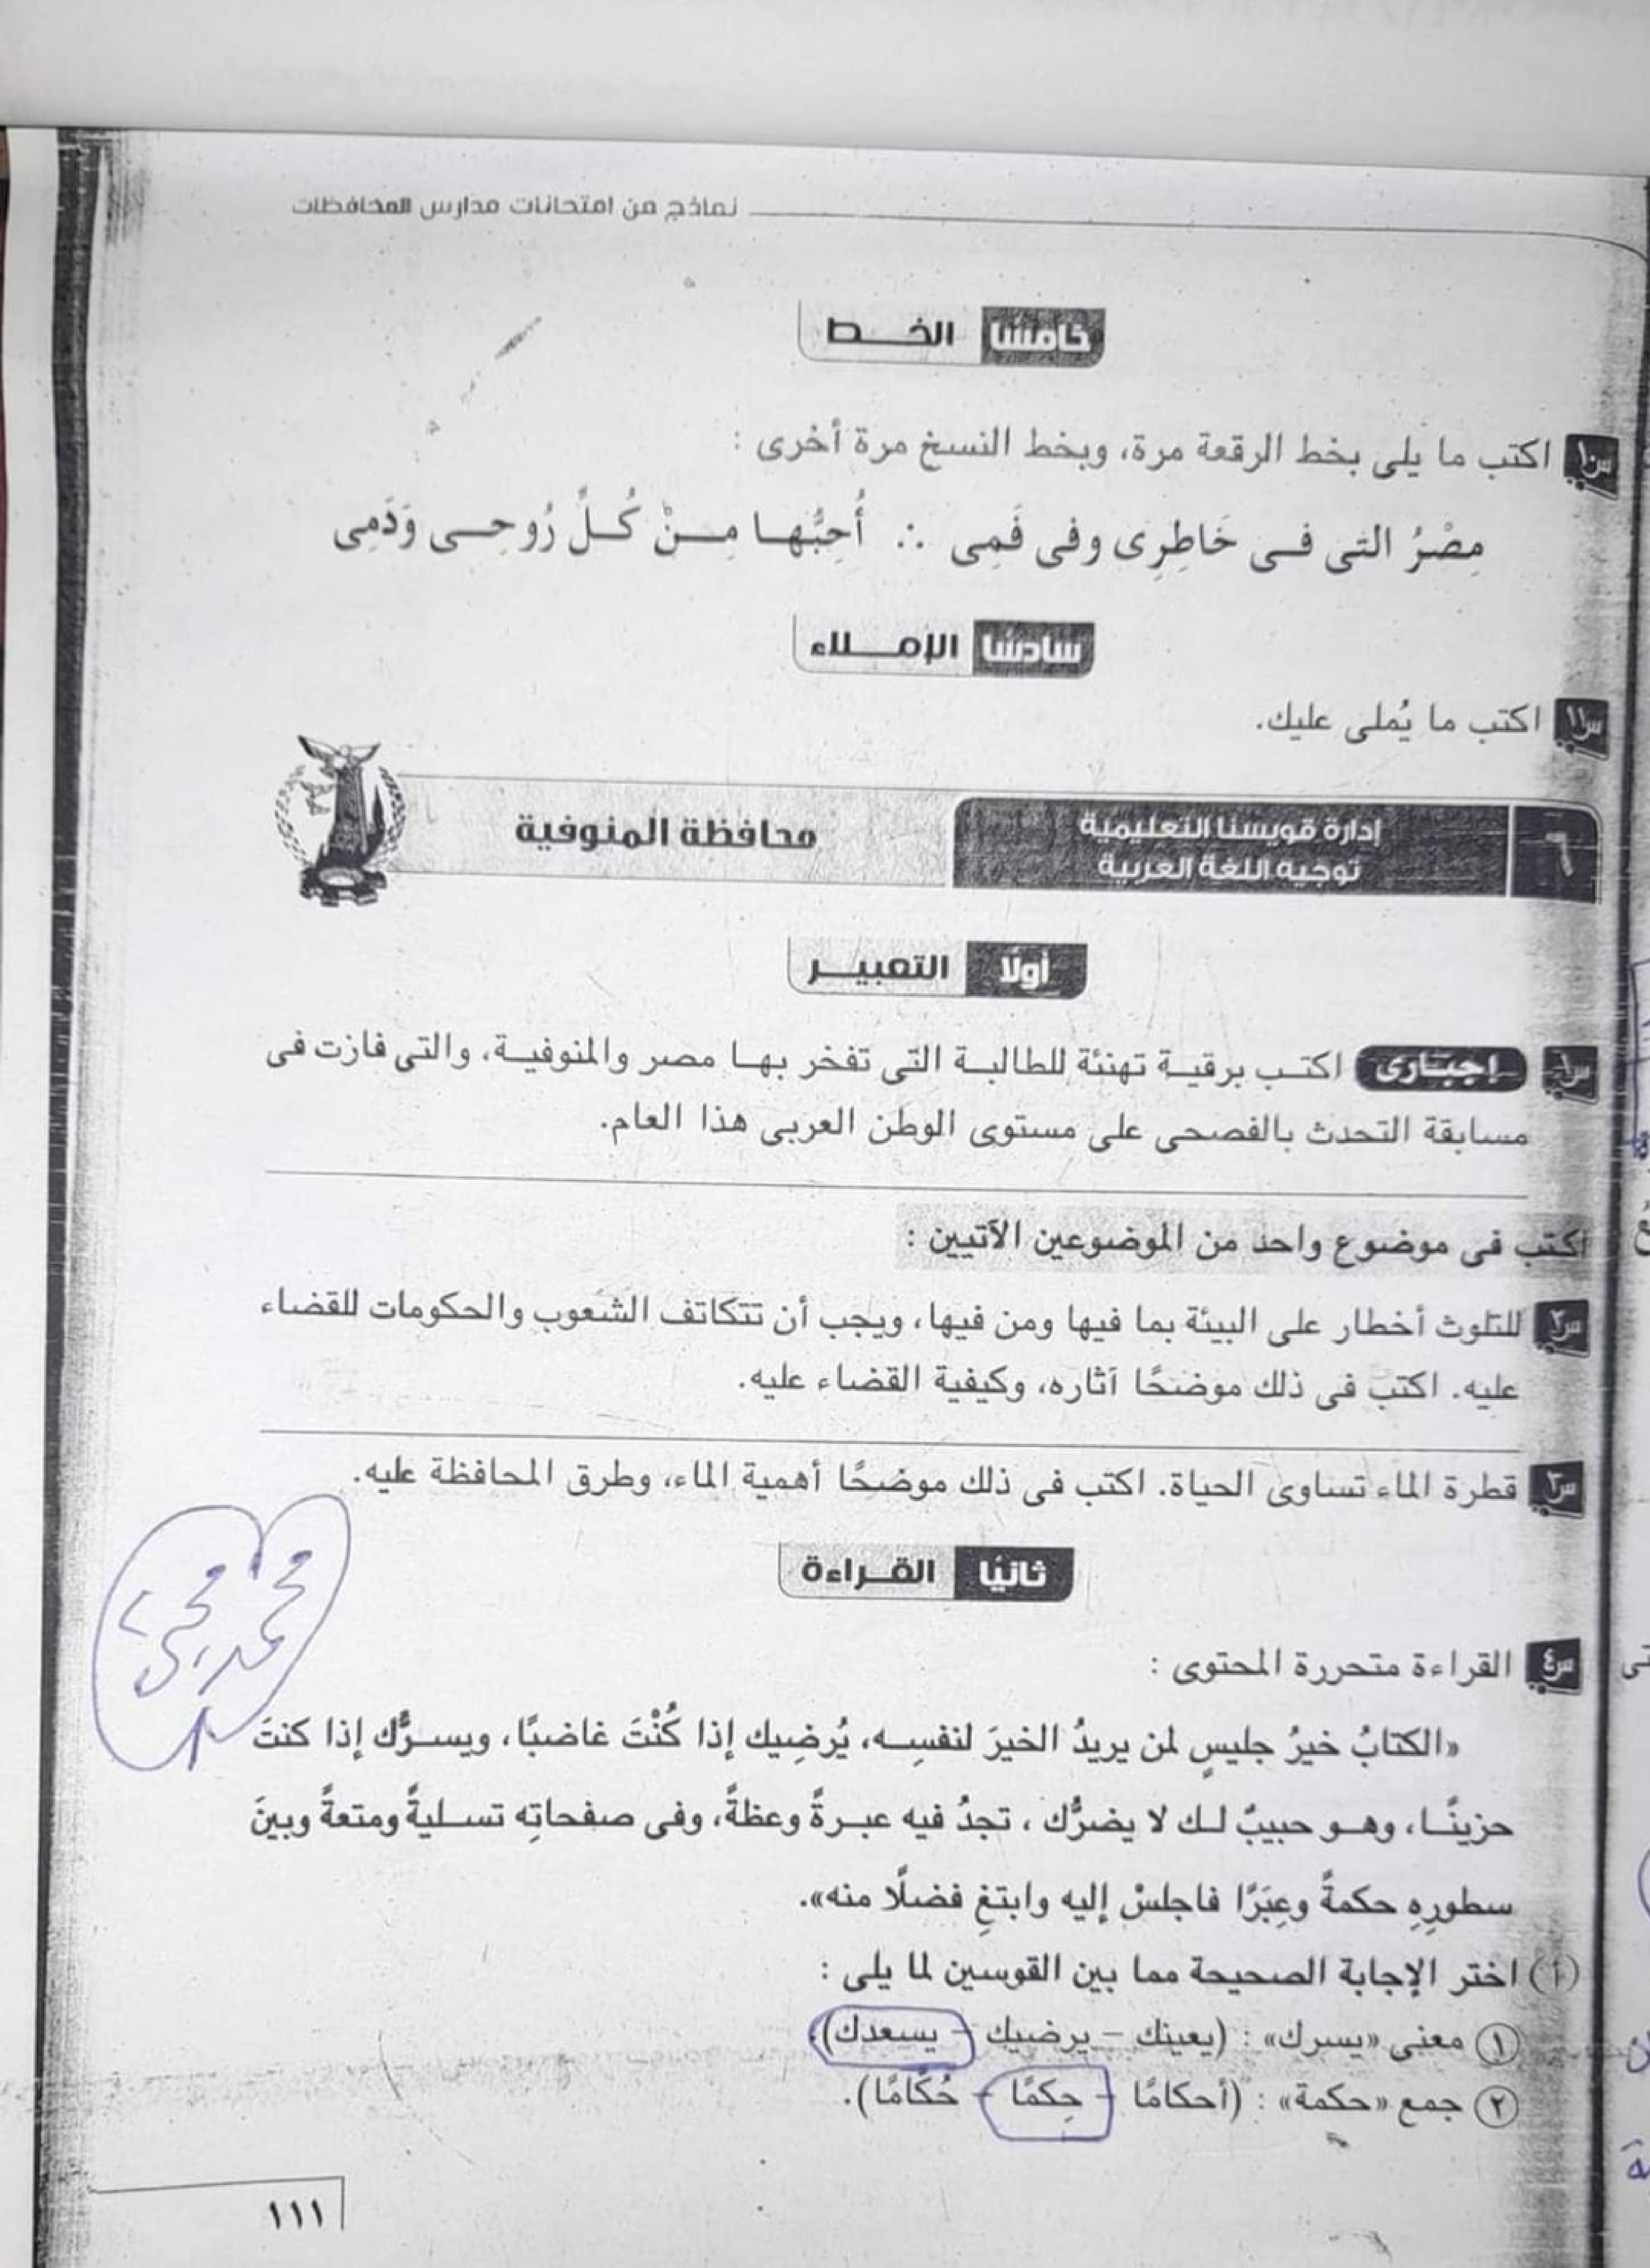 نماذج من امتحانات مدارس المحافظات
خامسًا الخـــط
س١٠ اكتب ما يلى بخط الرقعة مرة، وبخط النسخ مرة أخرى :
مِصْرُ التى فـى خَاطِرِى وفى فَمِى ∴ أُحِبُّهـا مِـنْ كُـلِّ رُوحِـى وَدَمِى
سادسًا الإمـــلاء
س١١ اكتب ما يُملى عليك.
٦ إدارة قويسنا التعليمية محافظة المنوفية
توجيه اللغة العربية
أولًا التعبيـــر
س١ إجبارى اكتـب برقيـة تهنئة للطالبـة التى تفخر بهـا مصر والمنوفيـة، والتى فازت فى
مسابقة التحدث بالفصحى على مستوى الوطن العربى هذا العام.
اكتب فى موضوع واحد من الموضوعين الآتيين :
س٢ للتلوث أخطار على البيئة بما فيها ومن فيها، ويجب أن تتكاتف الشعوب والحكومات للقضاء
عليه. اكتب فى ذلك موضحًا آثاره، وكيفية القضاء عليه.
س٣ قطرة الماء تساوى الحياة. اكتب فى ذلك موضحًا أهمية الماء، وطرق المحافظة عليه.
ثانيًا القـــراءة
محمد يحيى
س٤ القراءة متحررة المحتوى :
«الكتابُ خيرُ جليسٍ لمن يريدُ الخيرَ لنفسِـه، يُرضِيك إذا كُنْتَ غاضبًا، ويسـرُّك إذا كنتَ
حزينًـا، وهـو حبيبٌ لـك لا يضرُّك ، تجدُ فيه عبـرةً وعظةً، وفى صفحاتِه تسـليةً ومتعةً وبينَ
سطورِهِ حكمةً وعِبَرًا فاجلسْ إليه وابتغِ فضلًا منه».
(أ) اختر الإجابة الصحيحة مما بين القوسين لما يلى :
١ معنى «يسرك» : (يعينك – يرضيك – يسعدك).
٢ جمع «حكمة» : (أحكامًا – حِكمًا – حُكَّامًا).
١١١